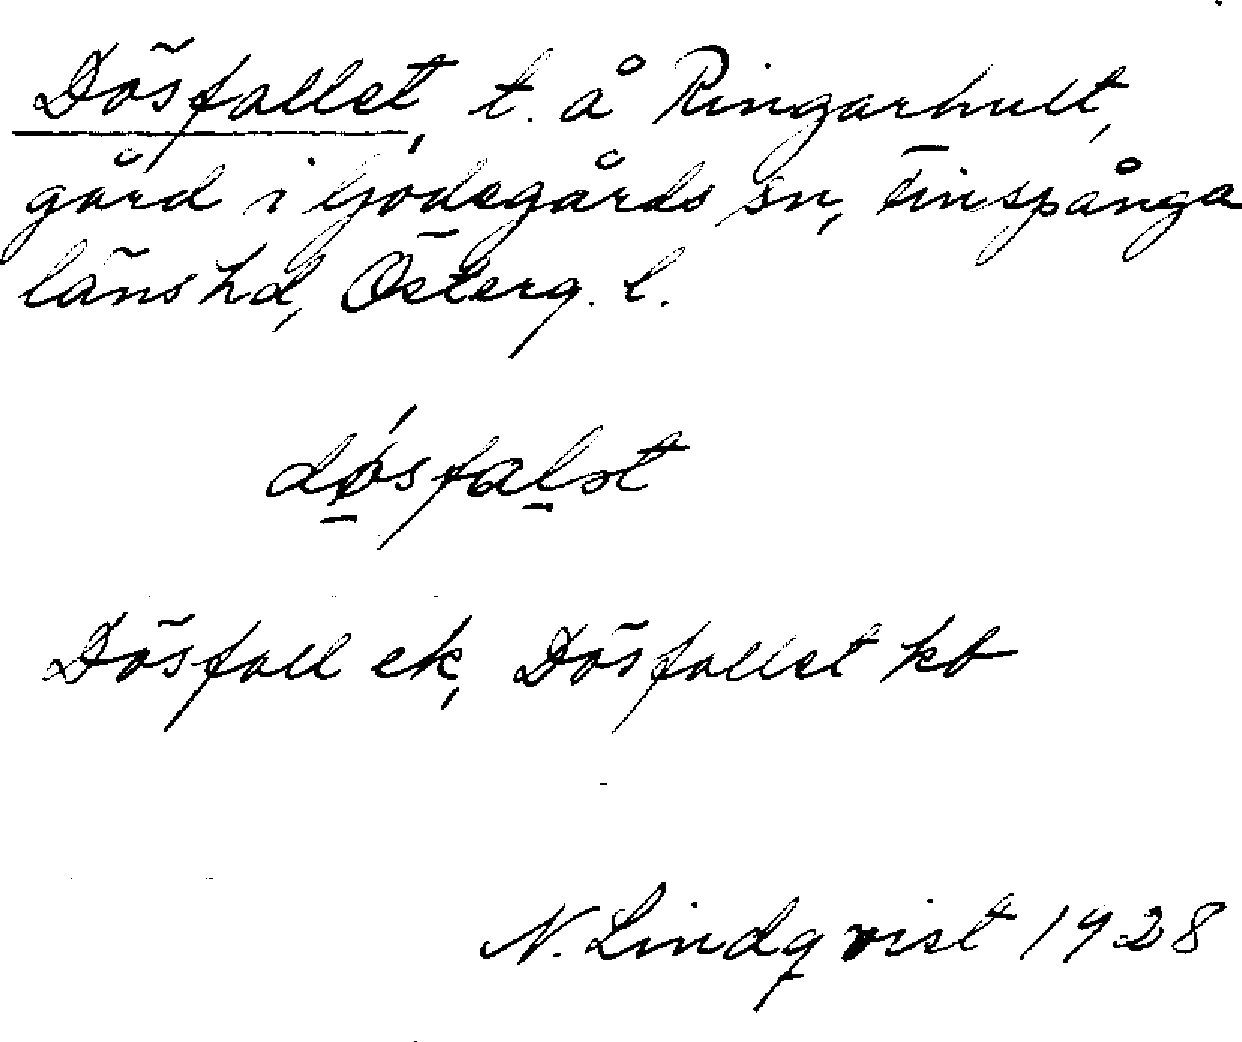 Dösfallet, t. å Ringarhult,
gård i Godegårds sn, Finspånga
läns hd, Österg. l.
døsfalət
Dösfall ek, Dösfallet kb
N. Lindqvist 1928